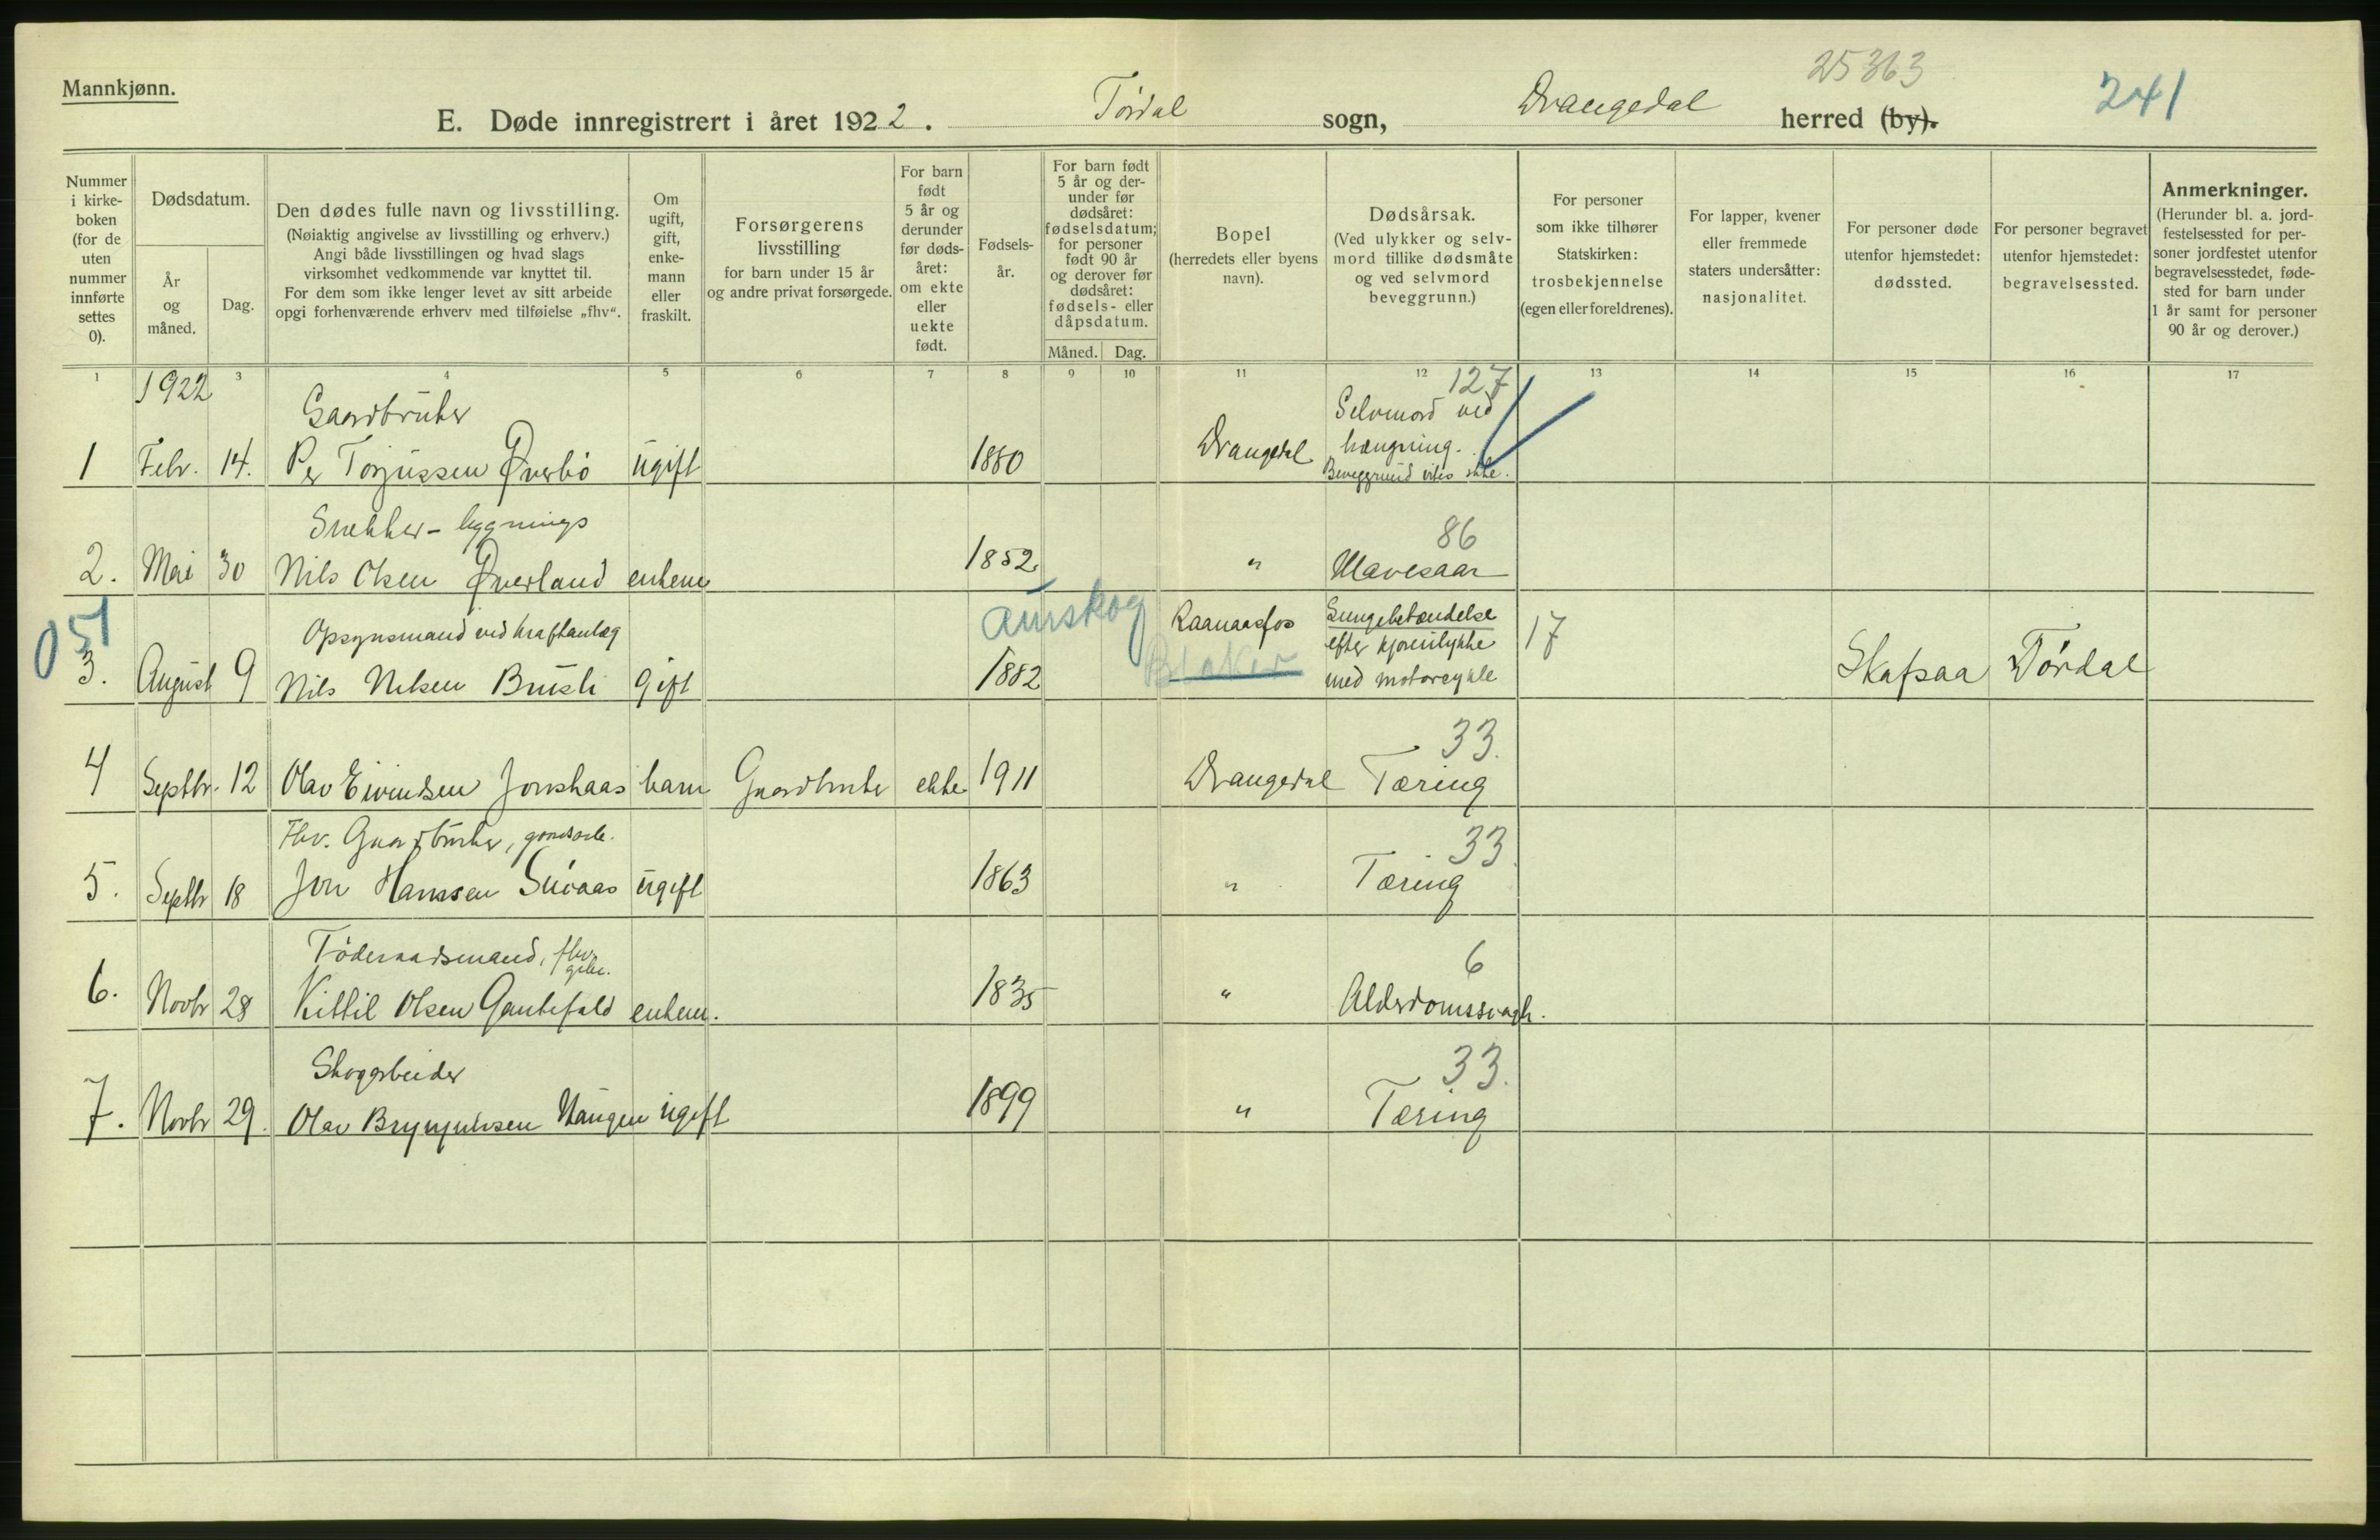 25363
Mannkjønn.
241
E. Døde innregistrert i året 1922. Tørdal sogn, Drangedal herred (by).
Nummer i kirke-boken (for de uten nummer innførte settes 0).
Dødsdatum.
År og måned.
Dag.
Den dødes fulle navn og livsstilling.
(Nøiaktig angivelse av livsstilling og erhverv.)
Angi både livsstillingen og hvad slags
virksomhet vedkommende var knyttet til.
For dem som ikke lenger levet av sitt arbeide
opgi forhenværende erhverv med tilføielse „fhv“.
Om ugift, gift, enke-mann eller fraskilt.
Forsørgerens livsstilling
for barn under 15 år
og andre privat forsørgede.
For barn født 5 år og derunder før døds-året: om ekte eller uekte født.
Fødsels-år.
For barn født 5 år og der-under før dødsåret: fødselsdatum; for personer født 90 år og derover før dødsåret: fødsels- eller dåpsdatum.
Måned. Dag.
Bopel
(herredets eller byens navn).
Dødsårsak.
(Ved ulykker og selv-mord tillike dødsmåte og ved selvmord beveggrunn.)
For personer som ikke tilhører Statskirken: trosbekjennelse (egen eller foreldrenes).
For lapper, kvener eller fremmede staters undersåtter: nasjonalitet.
For personer døde utenfor hjemstedet: dødssted.
For personer begravet utenfor hjemstedet: begravelsessted.
Anmerkninger.
(Herunder bl. a. jord-festelsessted for per-soner jordfestet utenfor begravelsesstedet, føde-sted for barn under 1 år samt for personer 90 år og derover.)
1 3 4 5 6 7 8 9 10 11 12 13 14 15 16 17
1922
127
Gaardbruker
Selvmord ved
1 Febr. 14. Per Torjussen Øverbö ugift 1880 Drangedal hængning.
Beveggrund vites ikke.
Snekker - bygnings
86
2. Mai 30 Nils Olsen Øverland enkem 1852 " Mavesaar
051
Aurskog
Opsynsmand ved kraftanlæg
Raanaasfos Lungebetændelse 17
efter kjøreulykke
Blaker
3. August 9 Nils Nilsen Brusli Gift 1882 med motorcykle Skafsaa Tørdal
33.
4 Septbr. 12 Olav Eivindsen Jonskaas barn Gaardbruker ekte 1911 Drangedal Tæring
Fhv. Gaardbruker,
33.
5. Septbr 18 Jon Hanssen ugift 1863 " Tæring
Föderaadsmand, fhv. gbr.
6
6. Novbr 28 Kittil Olsen Gautefald enkem. 1835 " Alderdomssvagh.
Skogarbeider
33.
7. Novbr 29. Olav Brynjulvsen Haugen ugift 1899 " Tæring